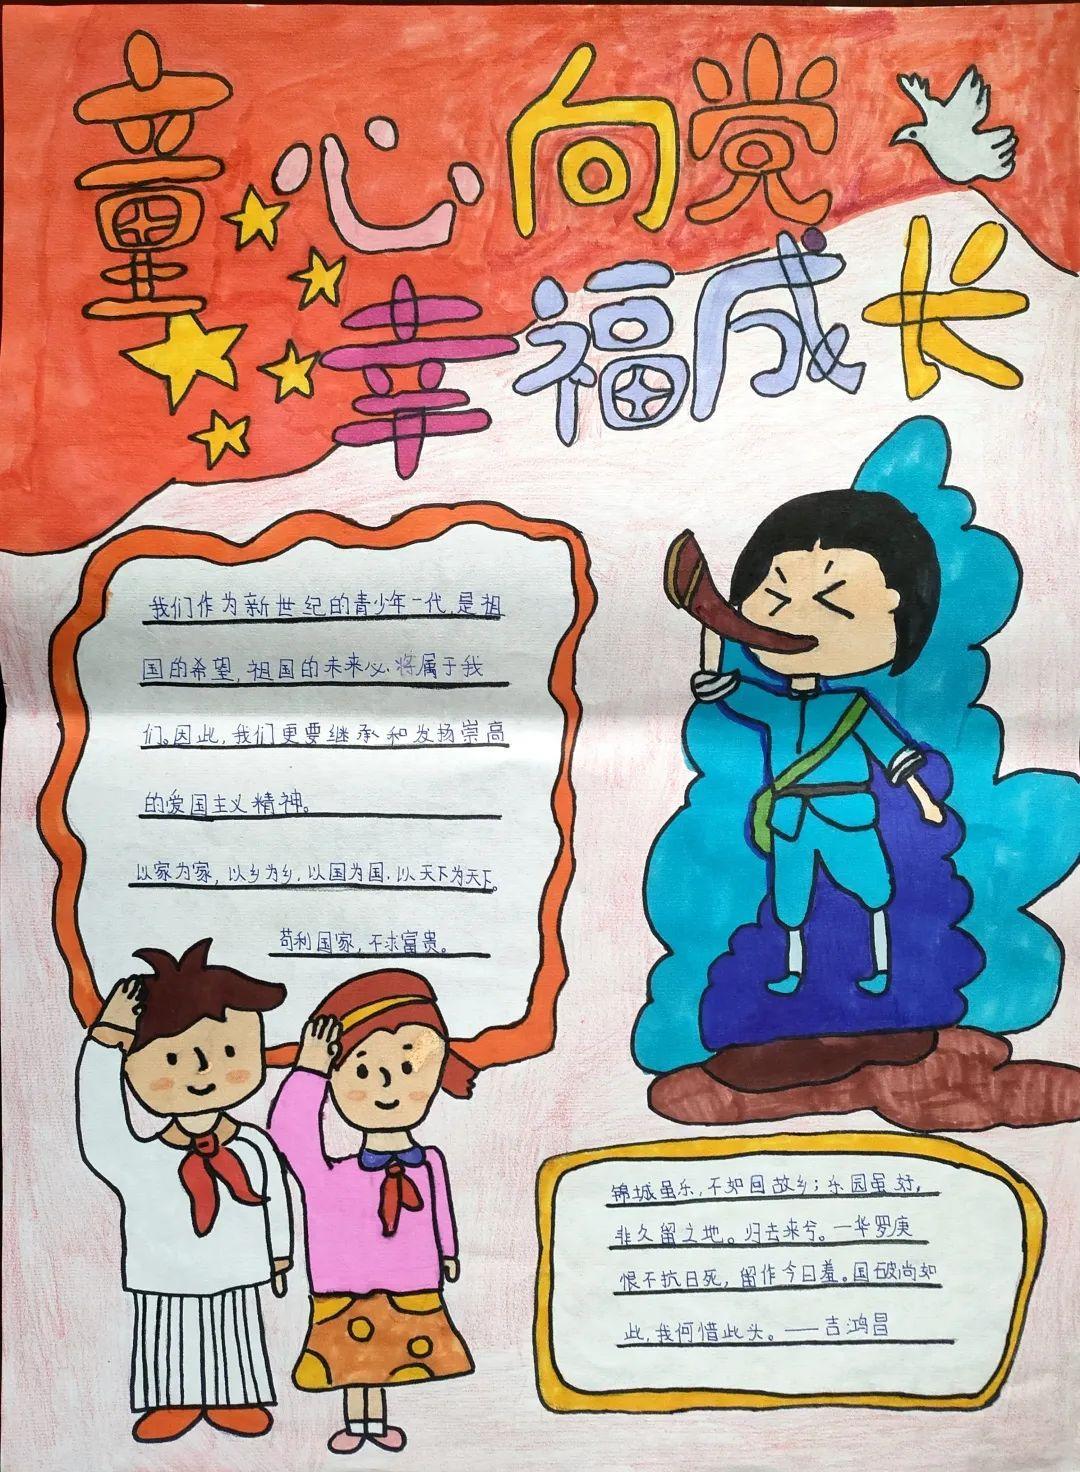 童心向党
幸福成长
我们作为新世纪的青少年一代,是祖
国的希望,祖国的未来必将属于我
们。因此,我们更要继承和发扬崇高
的爱国主义精神。
以家为家,以乡为乡,以国为国,以天下为天下。
苟利国家,不求富贵。
锦城虽乐,不如回故乡;乐园虽好,
非久留之地。归去来兮。一华罗庚
恨不抗日死,留作今日羞。国破尚如
此,我何惜此头。——吉鸿昌